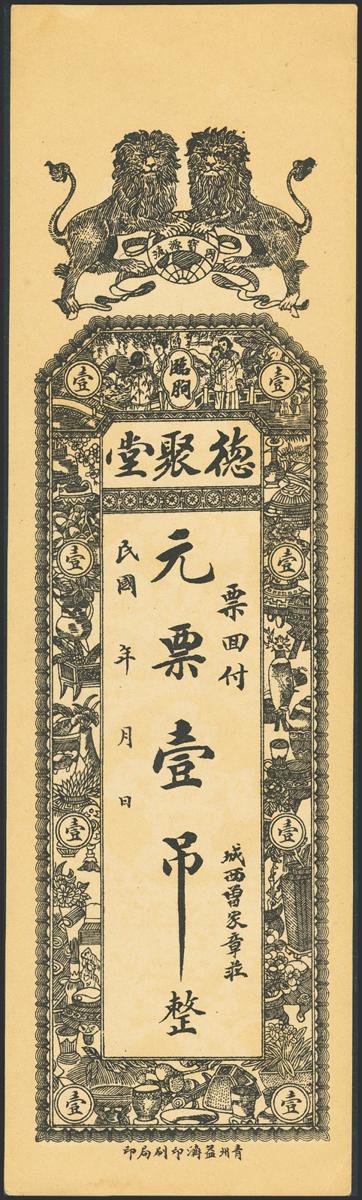 寶源流
臨朐
壹 壹
德聚堂
壹 壹
票囬付
城西曾家章莊
元票壹吊整
民國 年 月 日
壹 壹
壹 壹
青州益濟印刷局印